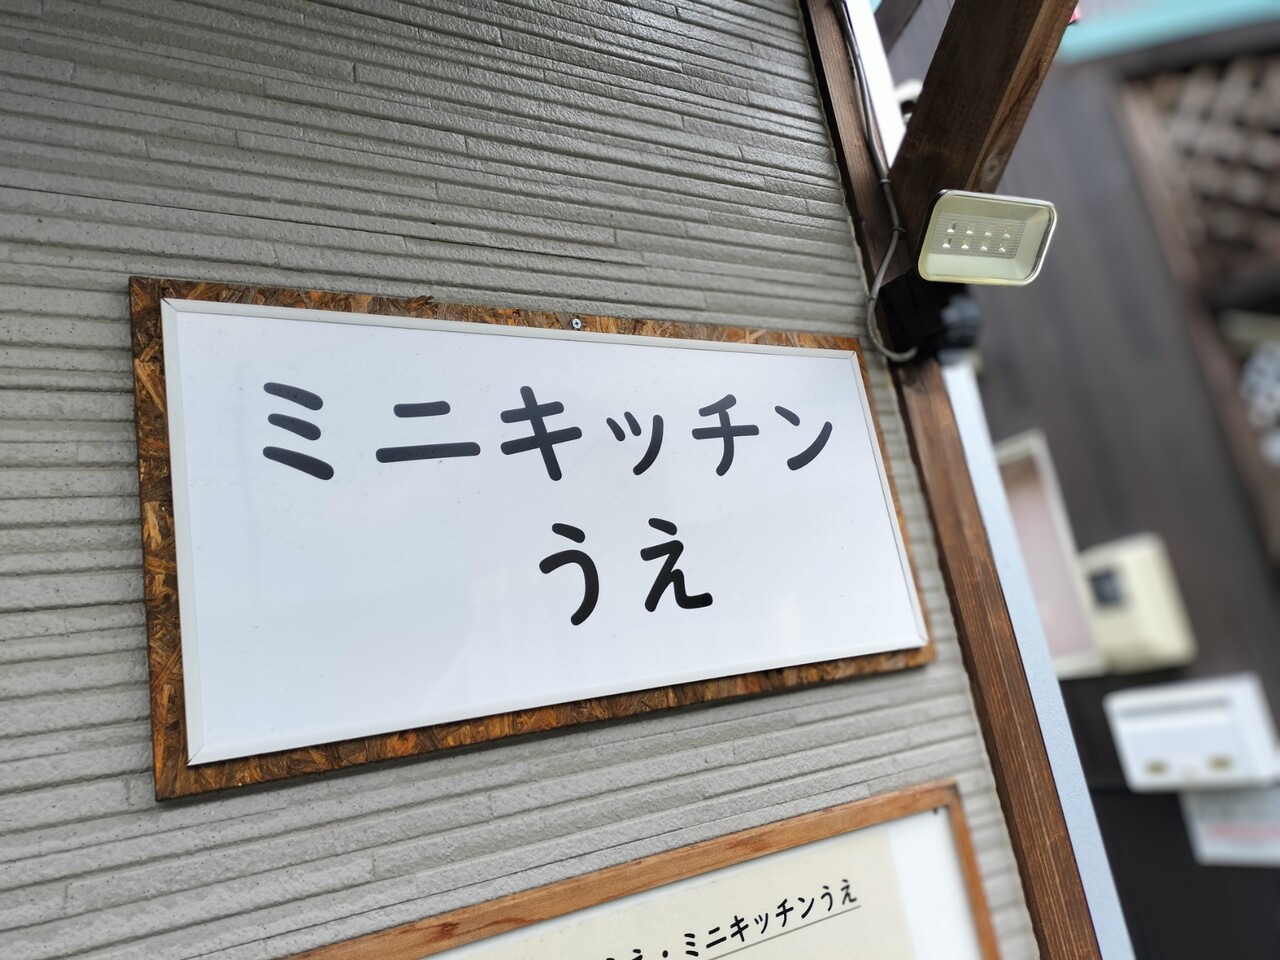 ミニキッチン
うえ
え・ミニキッチンうえ